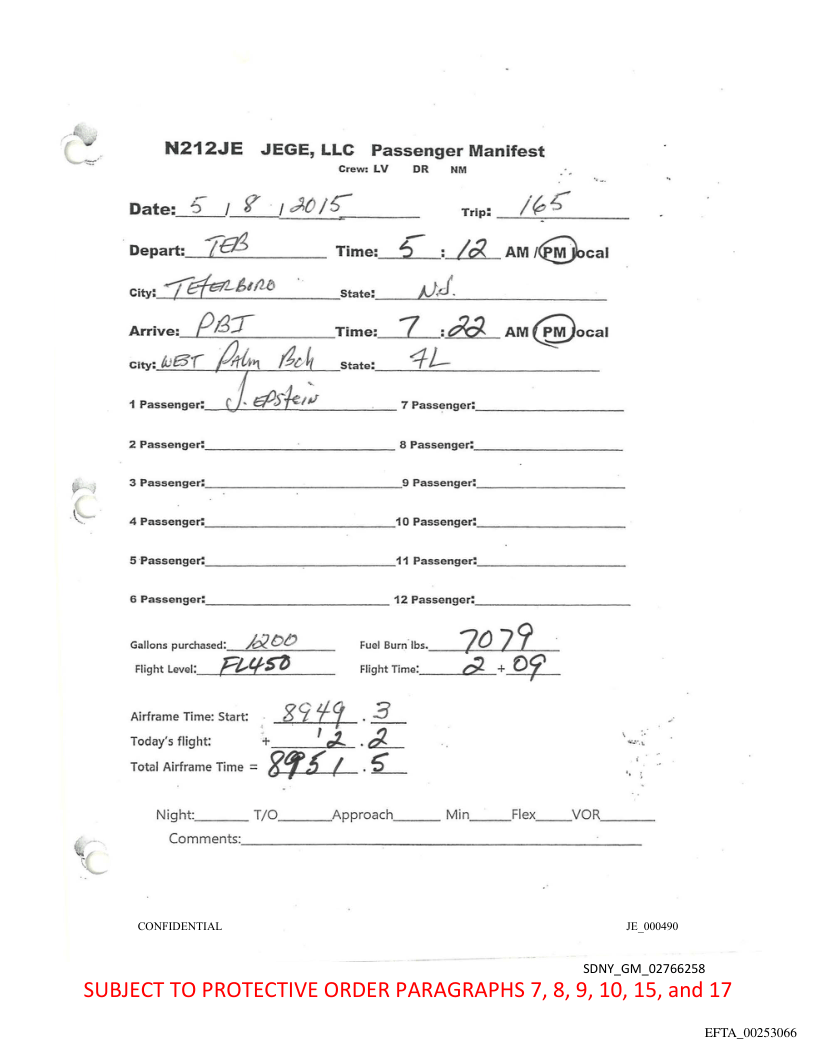 N212JE JEGE, LLC Passenger Manifest
Crew: LV DR NM
Date: 5 / 8 / 2015 Trip: 165
Depart: TEB Time: 5 : 12 AM / PM local
City: TETERBORO State: N.J.
Arrive: PBI Time: 7 : 22 AM / PM local
City: WEST Palm Bch State: FL
1 Passenger: J. EPSteiN 7 Passenger:
2 Passenger: 8 Passenger:
3 Passenger: 9 Passenger:
4 Passenger: 10 Passenger:
5 Passenger: 11 Passenger:
6 Passenger: 12 Passenger:
Gallons purchased: 1200 Fuel Burn lbs. 7079
Flight Level: FL450 Flight Time: 2 + 09
Airframe Time: Start: 8949 . 3
Today's flight: + 2 . 2
Total Airframe Time = 8951 . 5
Night: T/O Approach Min Flex VOR
Comments:
CONFIDENTIAL JE_000490
SDNY_GM_02766258
SUBJECT TO PROTECTIVE ORDER PARAGRAPHS 7, 8, 9, 10, 15, and 17
EFTA_00253066